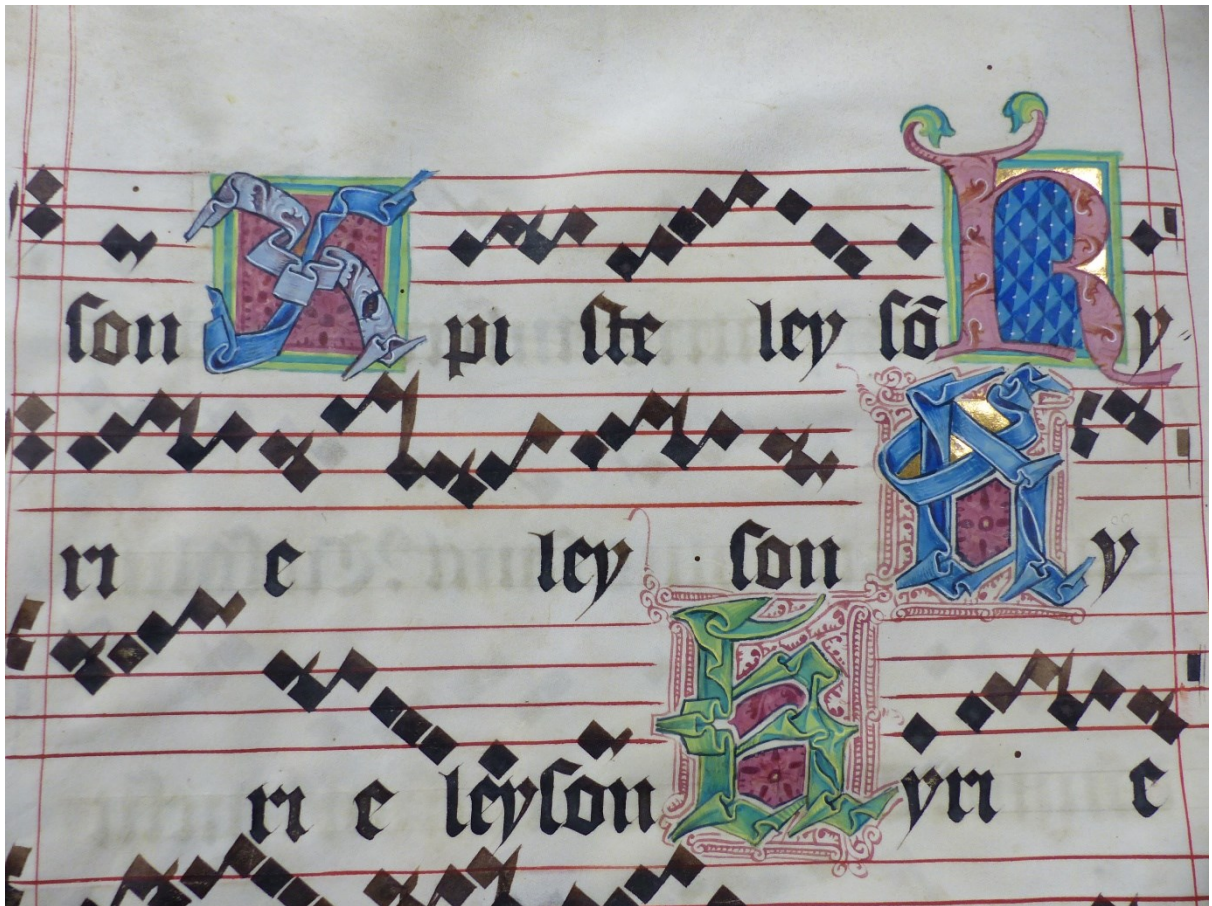 ſon X pi ſte ley ſō K y
ri e ley ſon K y
ri e leyſon K yri e